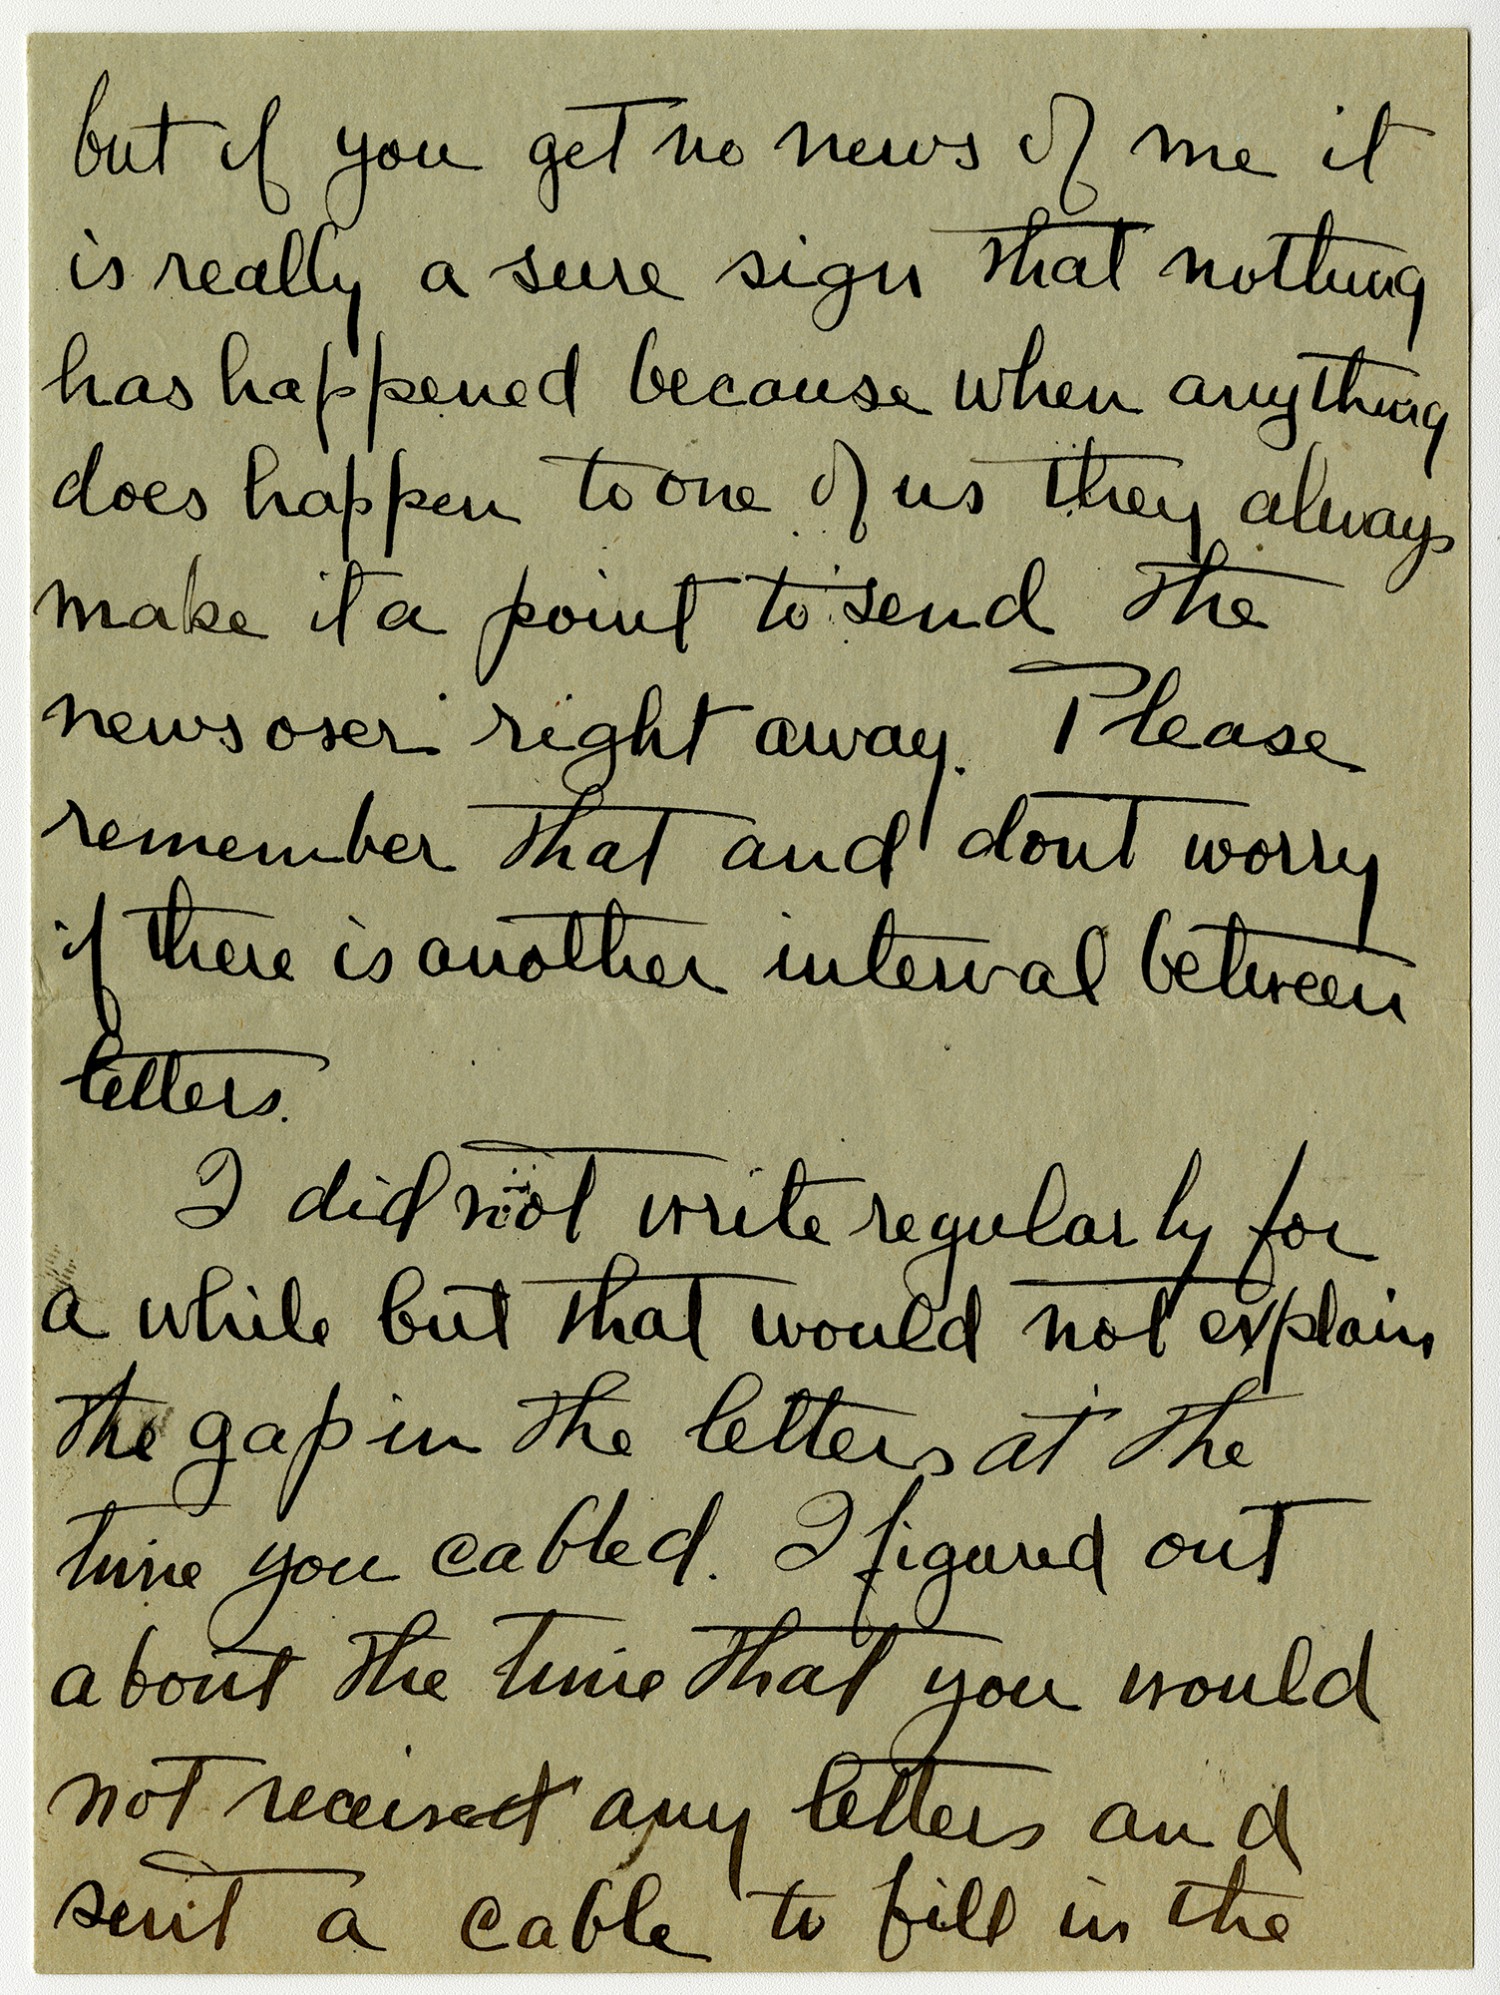 but if you get no news of me it
is really a sure sign that nothing
has happened because when anything
does happen to one of us they always
make it a point to send the
news over right away. Please
remember that and dont worry
if there is another interval between
letters.
I did not write regularly for
a while but that would not explain
the gap in the letters at the
time you cabled. I figured out
about the time that you would
not receive any letters and
sent a cable to fill in the